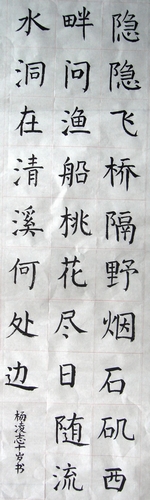 隐隐飞桥隔野烟石矶西
畔问渔船桃花尽日随流
水洞在清溪何处边
杨凌志十岁书